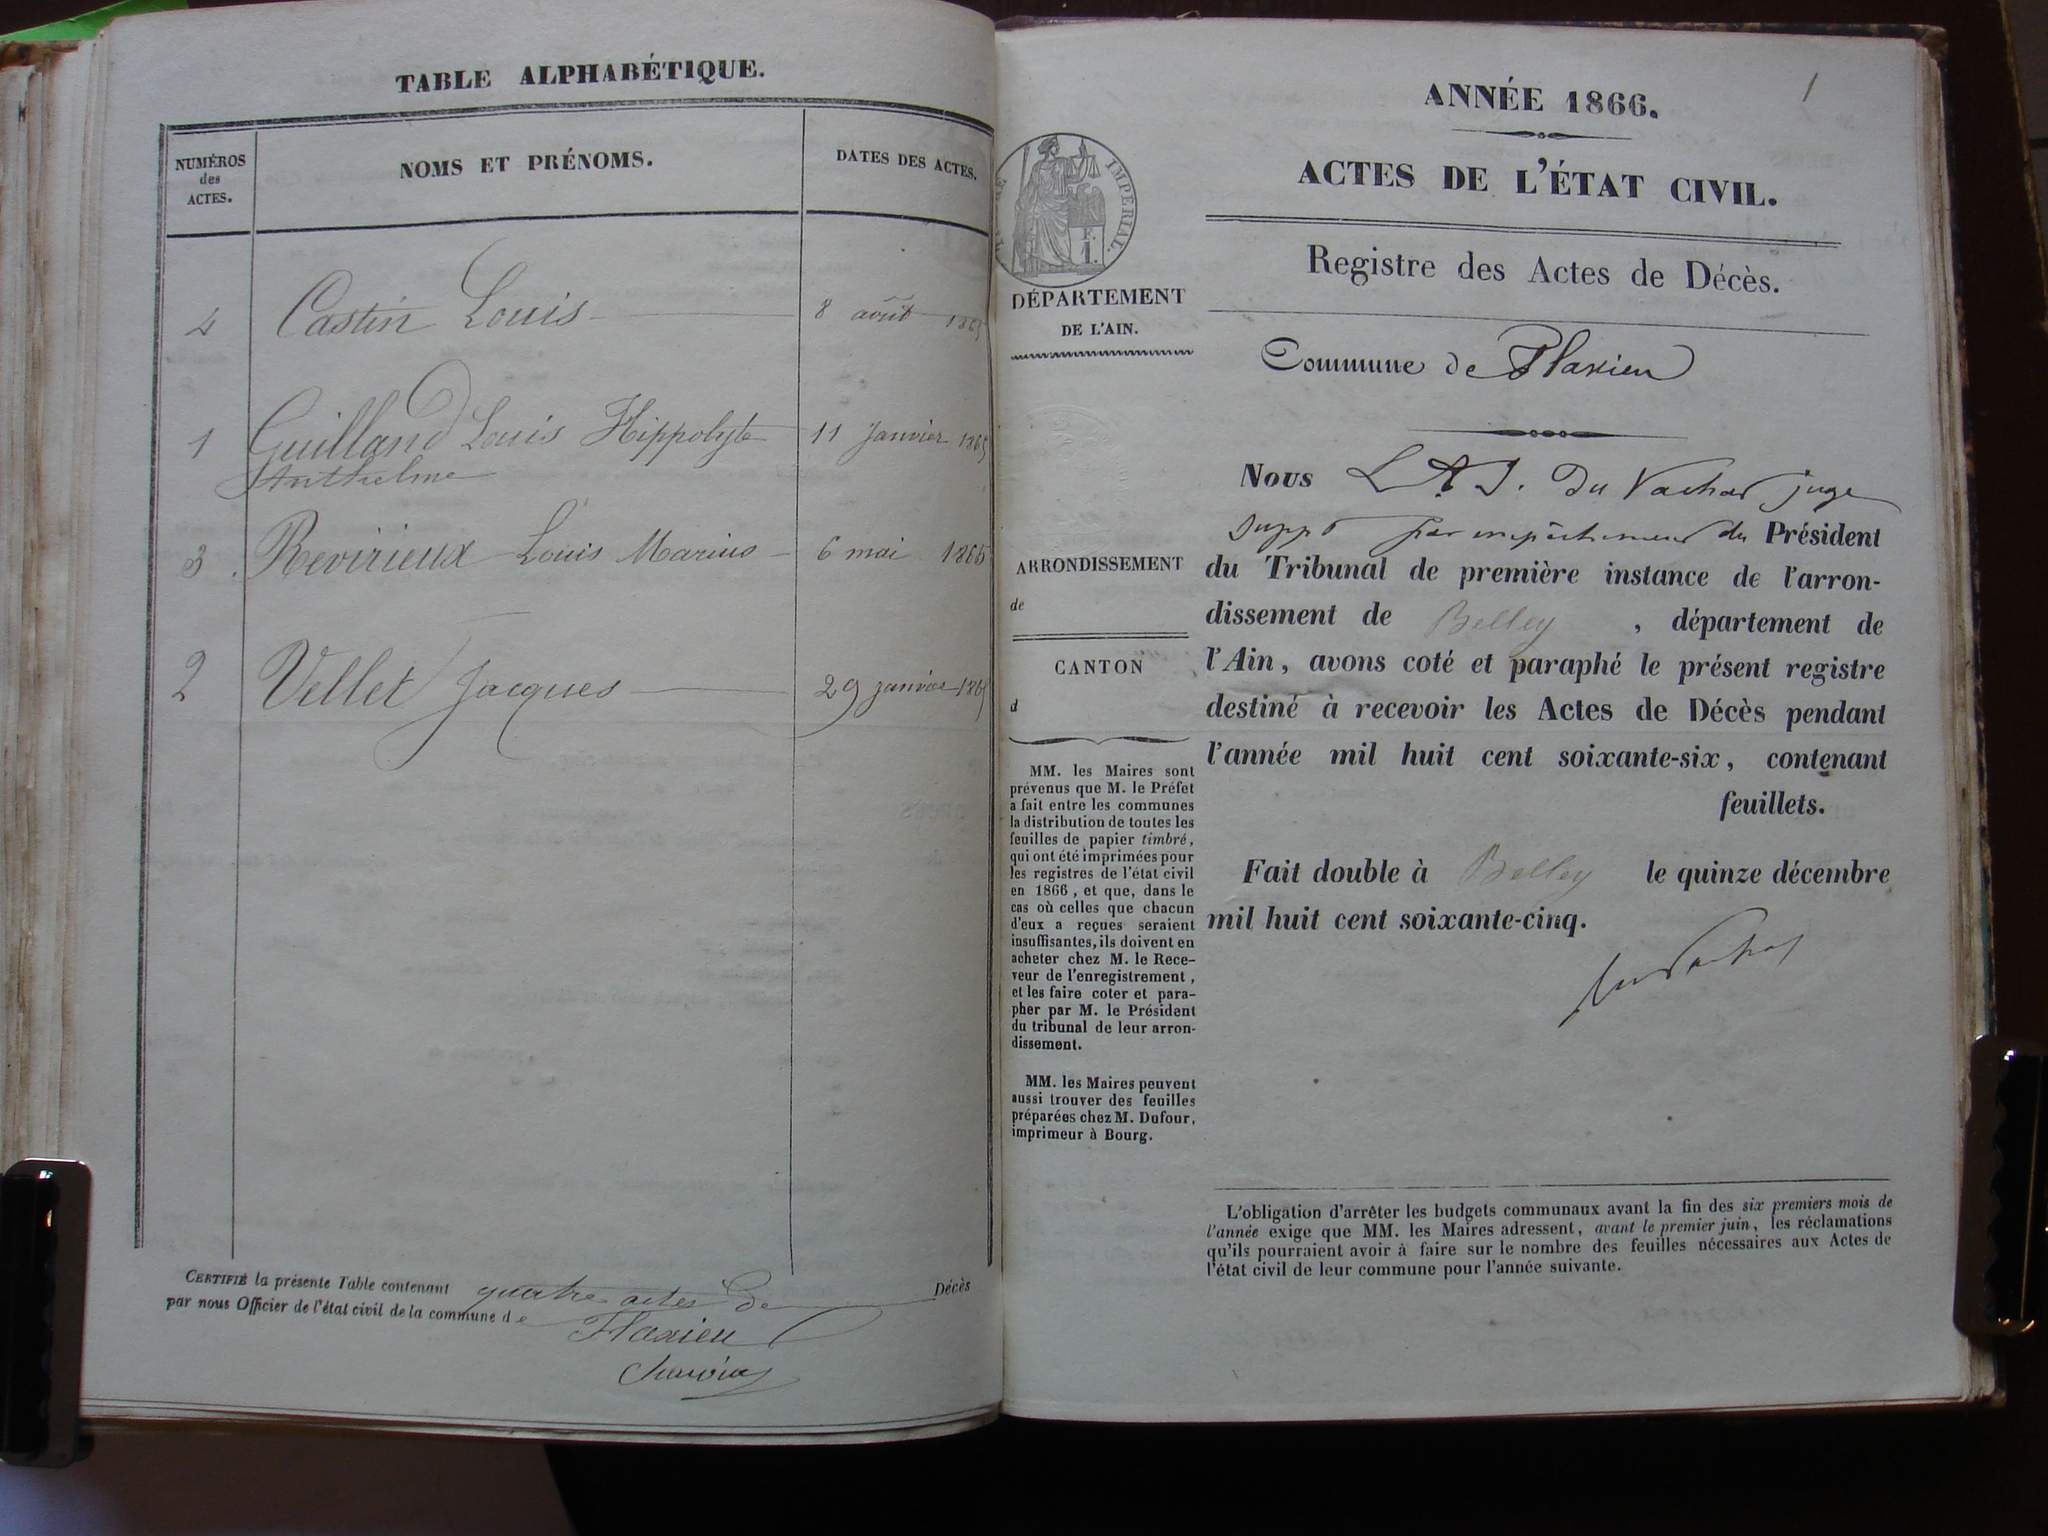 TABLE ALPHABÉTIQUE.
NUMÉROS des ACTES.
NOMS ET PRÉNOMS.
DATES DES ACTES.
4 Castin Louis 8 août 1865
1 Guilland Louis Hippolyte 11 Janvier 1865
Anthelme
3 Revirieux Louis Marius 6 mai 1865
2 Vellet Jacques 29 janvier 1865
CERTIFIÉ la présente Table contenant quatre actes de Décès
par nous Officier de l'état civil de la commune de
Flaxieu
ANNÉE 1866.
1
ACTES DE L'ÉTAT CIVIL.
Registre des Actes de Décès.
IMPERIAL.
F.
1.
DÉPARTEMENT
DE L'AIN.
Commune de Flaxieu
ARRONDISSEMENT
de
CANTON
d
MM. les Maires sont
prévenus que M. le Préfet
a fait entre les communes
la distribution de toutes les
feuilles de papier timbré,
qui ont été imprimées pour
les registres de l'état civil
en 1866, et que, dans le
cas où celles que chacun
d'eux a reçues seraient
insuffisantes, ils doivent en
acheter chez M. le Rece-
veur de l'enregistrement,
et les faire coter et para-
pher par M. le Président
du tribunal de leur arron-
dissement.
MM. les Maires peuvent
aussi trouver des feuilles
préparées chez M. Dufour,
imprimeur à Bourg.
Nous L A J. Du Vachat juge
supp par empêchement du Président
du Tribunal de première instance de l'arron-
dissement de Belley, département de
l'Ain, avons coté et paraphé le présent registre
destiné à recevoir les Actes de Décès pendant
l'année mil huit cent soixante-six, contenant
feuillets.
Fait double à Belley le quinze décembre
mil huit cent soixante-cinq.
DuVachat
L'obligation d'arrêter les budgets communaux avant la fin des six premiers mois de
l'année exige que MM. les Maires adressent, avant le premier juin, les réclamations
qu'ils pourraient avoir à faire sur le nombre des feuilles nécessaires aux Actes de
l'état civil de leur commune pour l'année suivante.